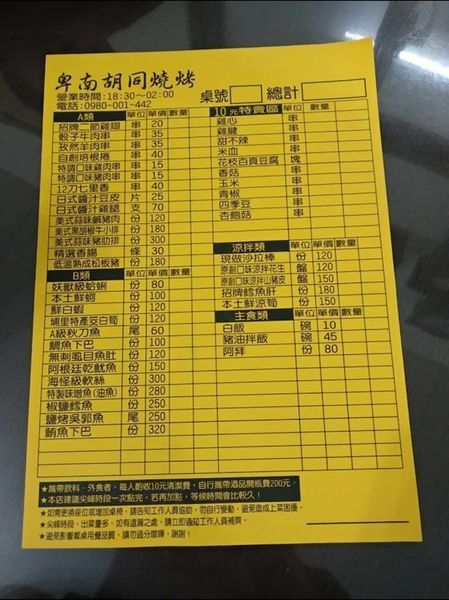 卑南胡同燒烤
營業時間:18:30~02:00
電話:0980-001-442
桌號 總計
A類 單位 單價 數量
招牌二節雞翅 串 20
骰子牛肉串 串 35
孜然羊肉串 串 35
自創培根捲 串 40
特調口味雞肉串 串 15
特調口味豬肉串 串 15
12刀七里香 串 40
日式醬汁豆皮 片 25
日式醬汁雞腿 支 70
美式蒜味鹹豬肉 份 120
美式黑胡椒牛小排 份 180
美式蒜味豬肋排 份 300
精選香腸 條 30
低溫熟成松板豬 份 180
B類 單位 單價 數量
妖獸級蛤蜊 份 80
本土鮮蚵 份 100
鮮白蝦 份 120
埔里特產茭白筍 份 120
A級秋刀魚 尾 60
鯛魚下巴 份 100
無刺虱目魚肚 份 120
阿根廷乾魷魚 份 150
海怪級軟絲 份 300
特製味噌魚(油魚) 份 280
椒鹽鱈魚 份 250
鹽烤吳郭魚 尾 250
鮪魚下巴 份 320
10元特賣區 單位 單價 數量
雞心 串
雞腱 串
甜不辣 串
米血 串
花枝百頁豆腐 塊
香菇 串
玉米 串
青椒 串
四季豆 串
杏鮑菇 串
涼拌類 單位 單價 數量
現做沙拉棒 份 120
原創口味涼拌花生 盤 120
原創口味涼拌山豬皮 盤 150
招牌鱈魚肝 份 180
本土鮮涼筍 份 150
主食類 單位 單價 數量
白飯 碗 10
豬油拌飯 碗 45
阿拜 份 80
★攜帶飲料、外食者，每人酌收10元清潔費，自行攜帶酒品開瓶費200元。
★本店建議尖峰時段一次點完，若再加點，等候時間會比較久！
★如需更換座位或增加桌椅，請告知工作人員協助，勿自行變動，避免造成上菜困擾。
★尖峰時段，出菜量多，如有遺漏之處，請立即通知工作人員補齊。
★避免影響鄰桌用餐品質，請勿過分喧嘩，謝謝！